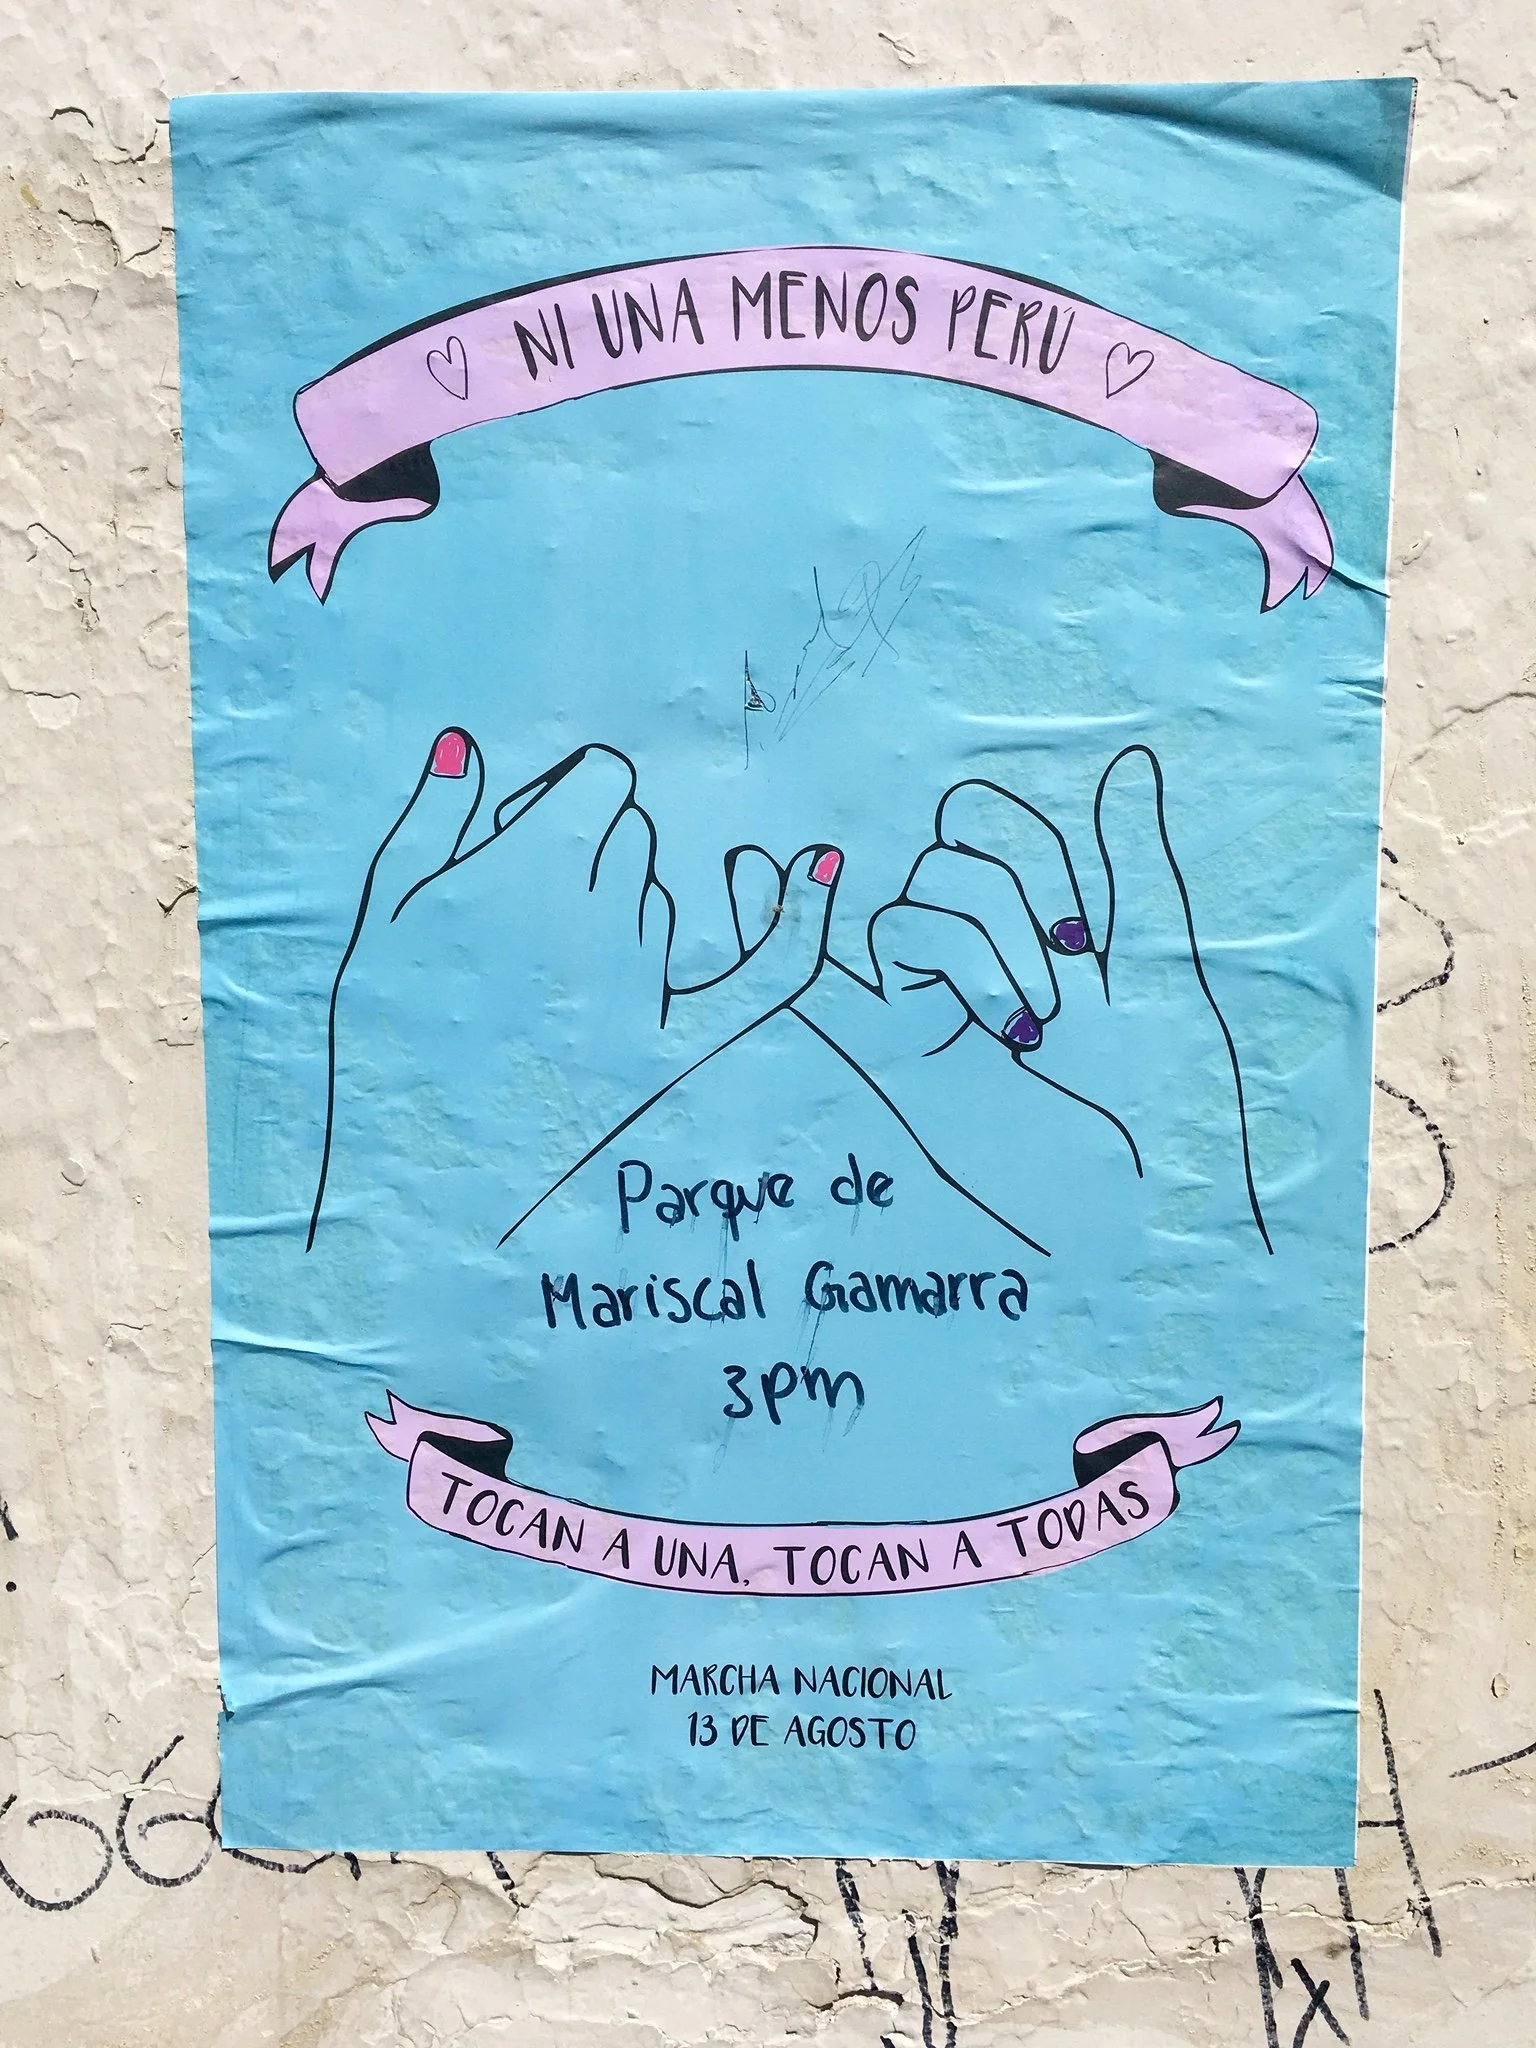 NI UNA MENOS PERÚ
Parque de
Mariscal Gamarra
3pm
TOCAN A UNA, TOCAN A TODAS
MARCHA NACIONAL
13 DE AGOSTO